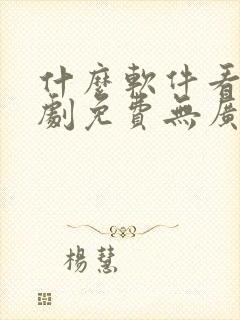 什麼軟件看
劇免費無廣
楊慧